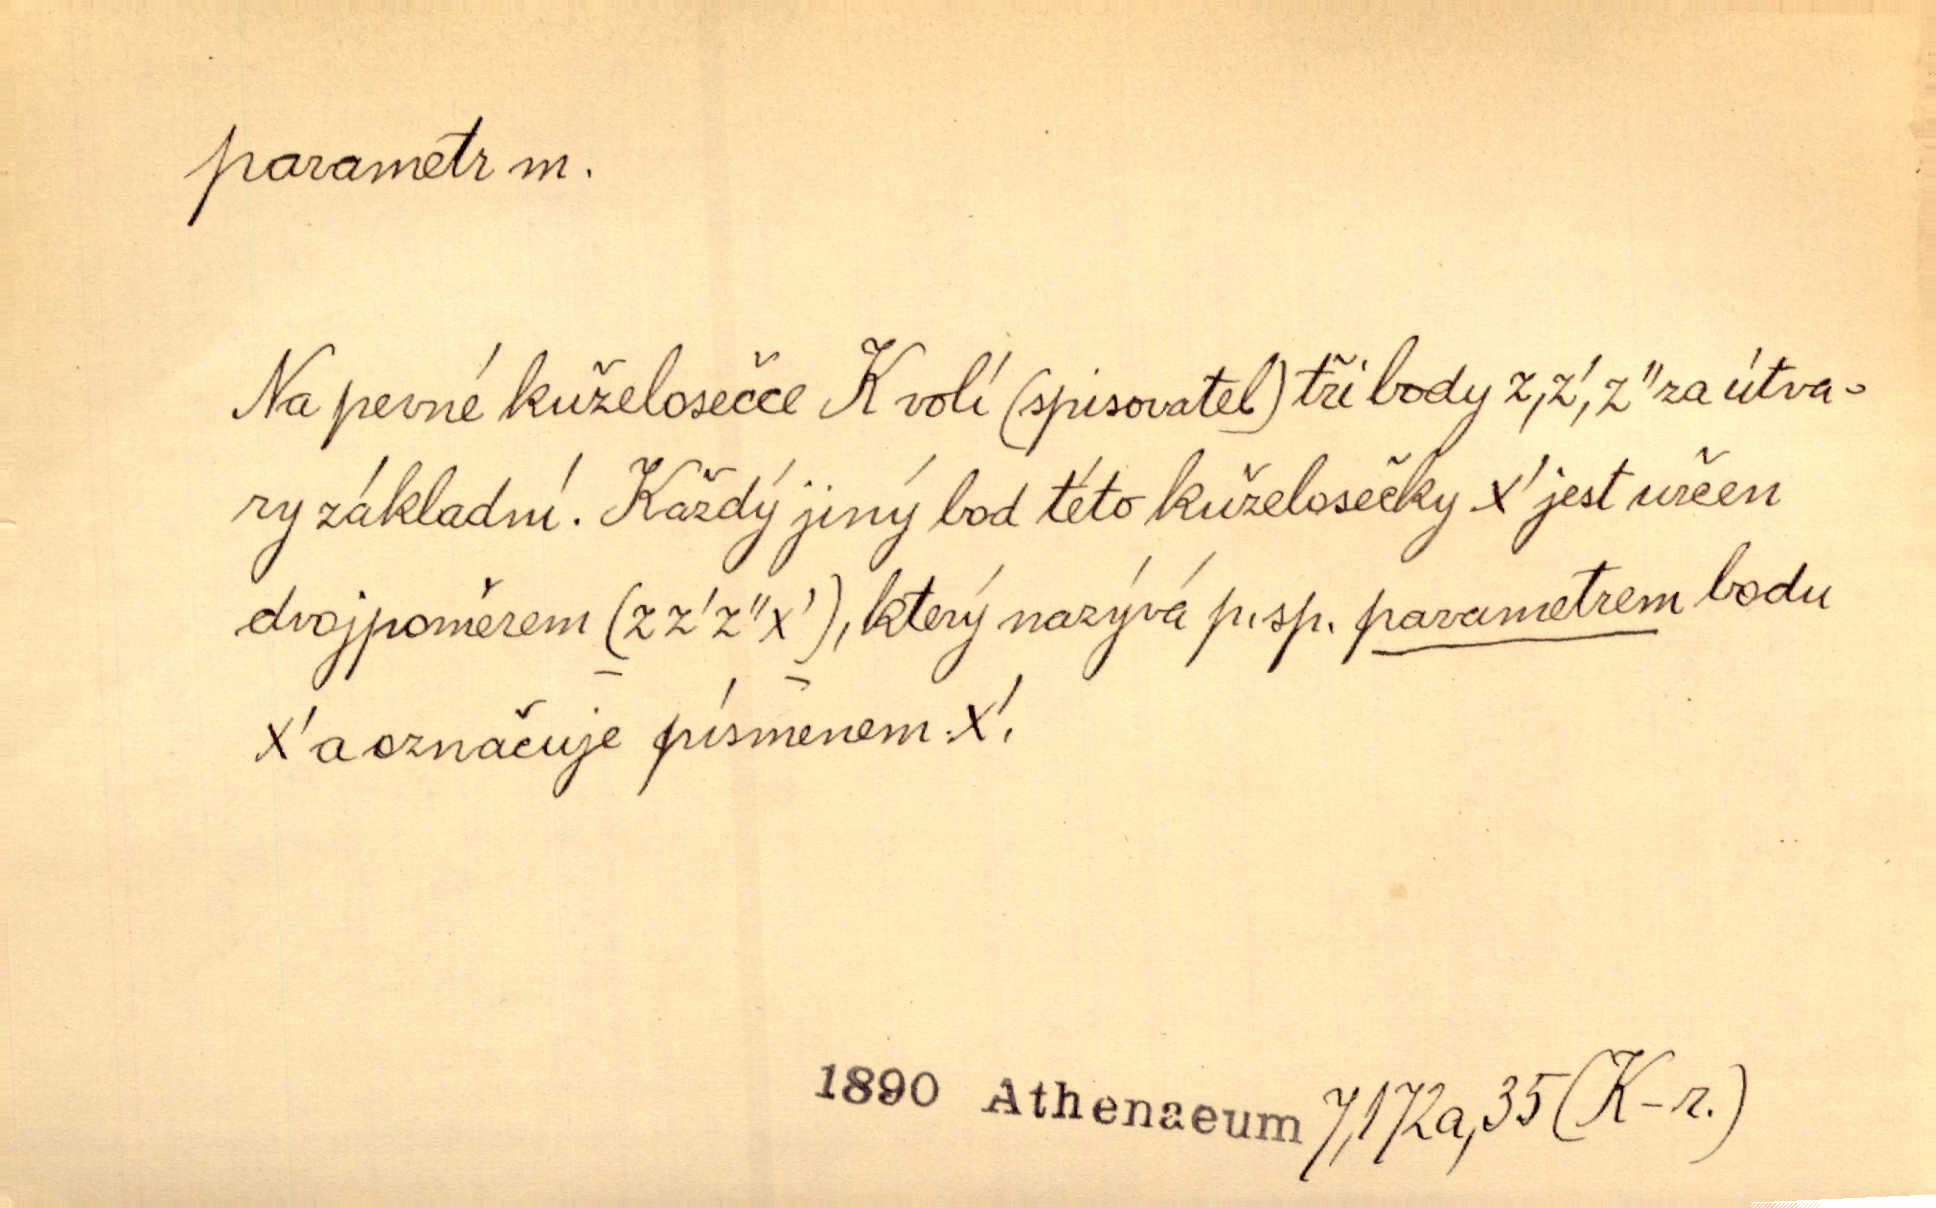 parametr m.
Na pevné kuželosečce K volí (spisovatel) tři body z, z', z" za útva-
ry základní. Každý jiný bod této kuželosečky x' jest určen
dvojpoměrem (z z' z" x'), který nazývá p. sp. parametrem bodu
x' a označuje písmenem x'.
1890 Athenaeum 7,172a,35 (K-r.)